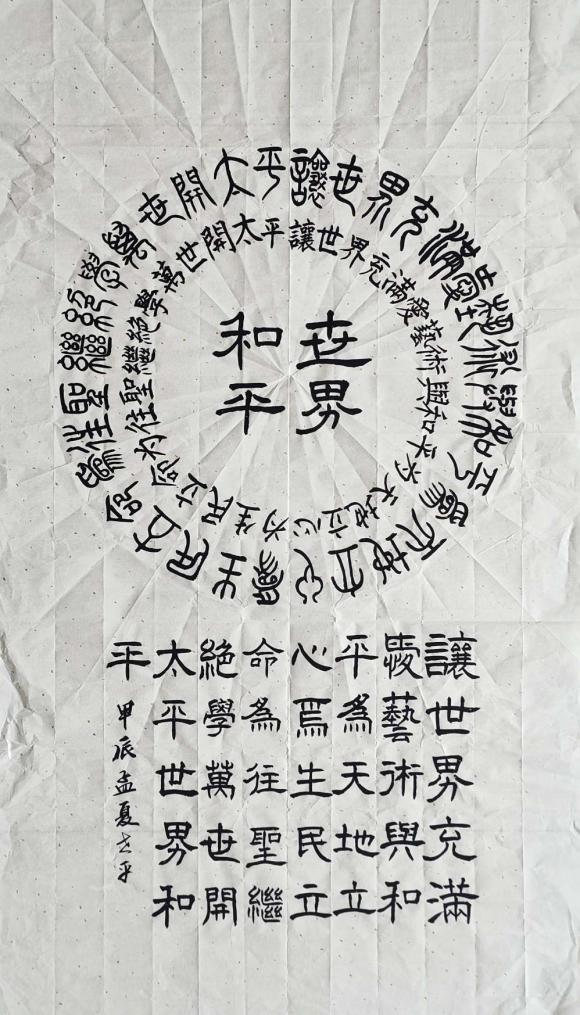 讓世界充滿愛藝術與和平為天地立心為生民立命為往聖繼絕學萬世開太平
讓世界充滿愛藝術與和平為天地立心為生民立命為往聖繼絕學萬世開太平
世界
和平
讓世界充滿
愛藝術與和
平為天地立
心為生民立
命為往聖繼
絕學萬世開
太平世界和
平
甲辰孟夏